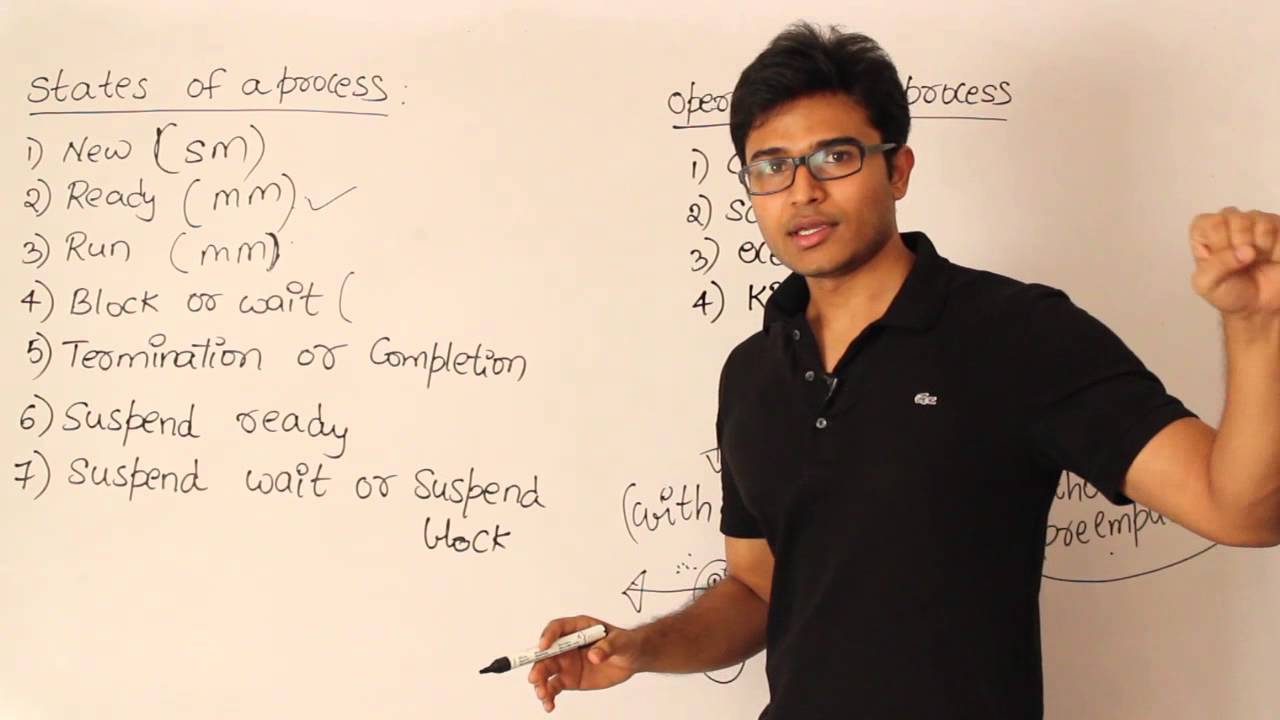 States of a process:
1) New (SM)
2) Ready (mm) ✓
3) Run (mm)
4) Block or wait (
5) Termination or Completion
6) Suspend ready
7) Suspend wait or Suspend
block
process
1)
2)
3)
4)
(with